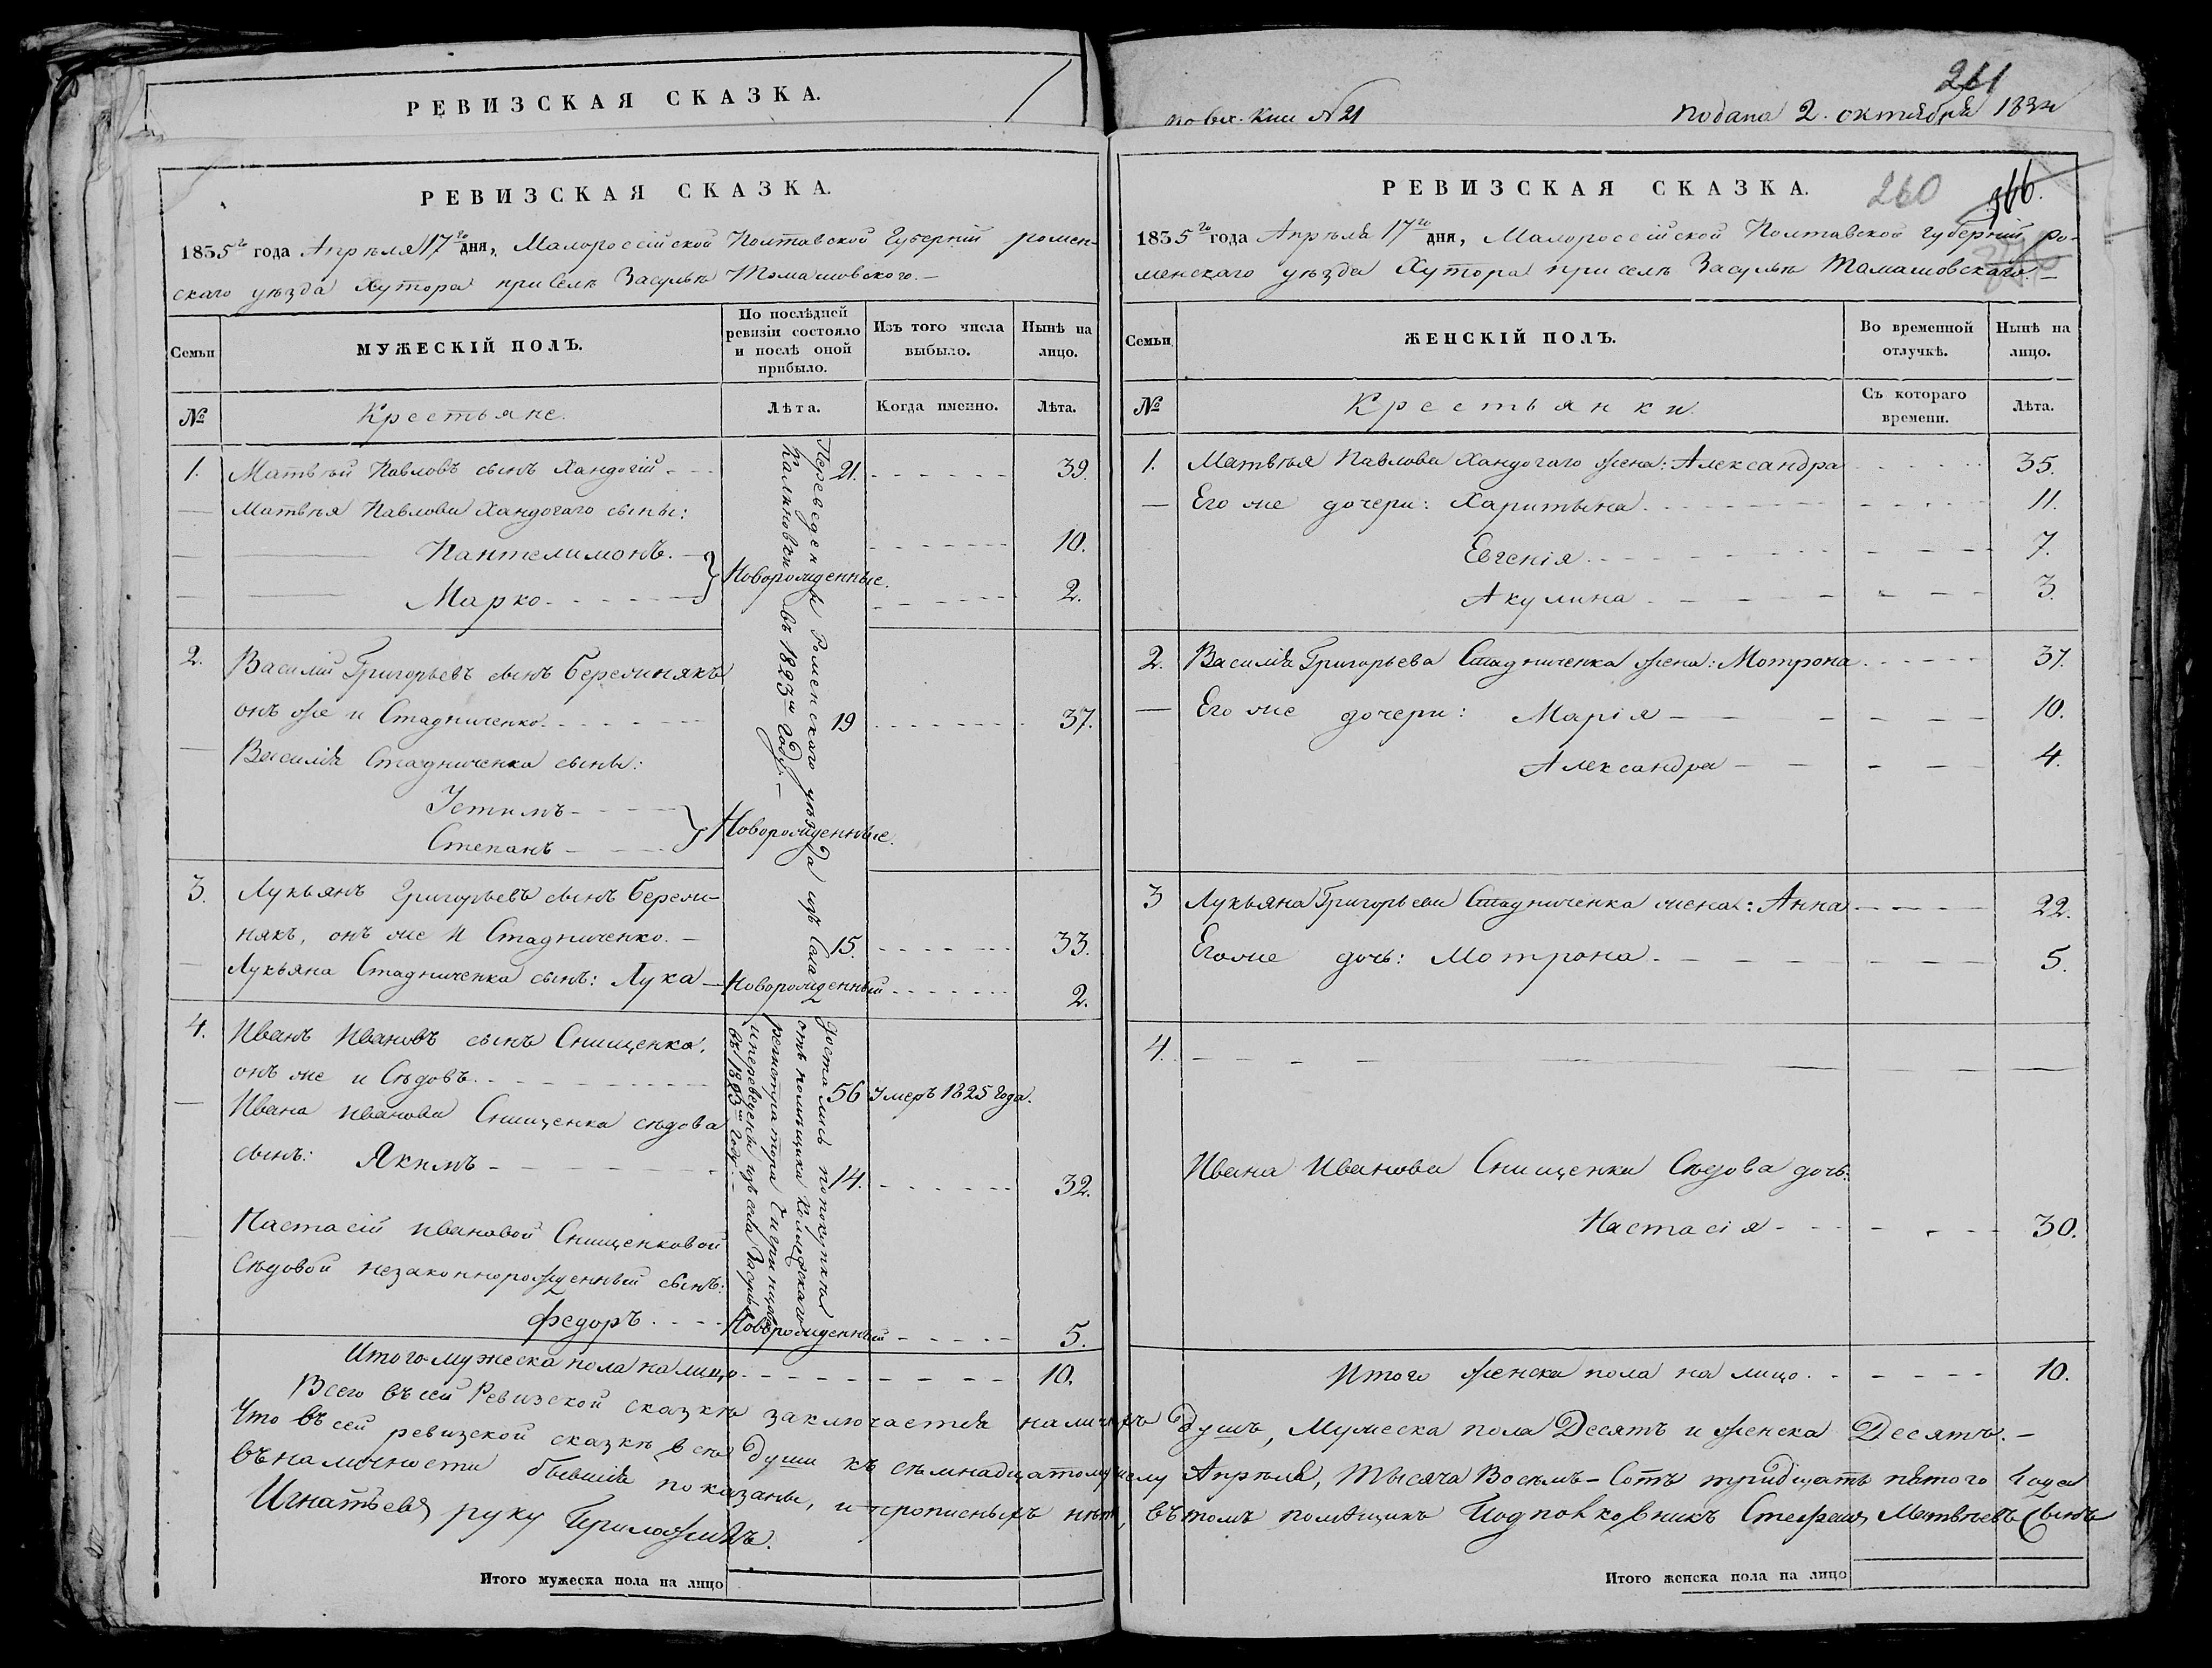 РЕВИЗСКАЯ СКАЗКА.
РЕВИЗСКАЯ СКАЗКА.
1835го года Апрѣля 17го дня, Малороссійской Полтавской Губерніи ромен-
скаго уѣзда Хутора при селѣ Засульѣ Томашовского.
Семьи
МУЖЕСКІЙ ПОЛЪ.
По послѣдней ревизіи состояло и послѣ оной прибыло.
Изъ того числа выбыло.
Нынѣ на лицо.
№
Крестьяне.
Лѣта.
Когда именно.
Лѣта.
1. Матвѣй Павловъ сынъ Хандогій 21. 39.
Матвѣя Павлова Хандогаго сыны:
Пантелимонъ. 10.
Новорожденные.
Марко 2.
Переведены Роменскаго уѣзда изъ села
Калиновки въ 1823м году.
2. Василій Григорьевъ сынъ Бережнякъ
онъ же и Стадниченко. 19 37.
Василія Стадниченка сыны:
Устимъ
Степанъ
Новорожденные.
3. Лукьянъ Григорьевъ сынъ Береж-
някъ, онъ же и Стадниченко. 15. 33.
Лукьяна Стадниченка сынъ: Лука Новорожденный 2.
4. Иванъ Ивановъ сынъ Снищенко,
онъ же и Сѣдовъ. 56 Умеръ 1825 года.
Ивана Иванова Снищенка сѣдова
сынъ: Якимъ 14. 32.
Достались по покупкѣ
отъ помѣщика
и переведены изъ села Засулья
въ 1823м году.
Настасіи Ивановой Снищенковой
Сѣдовой незаконнорожденный сынъ:
Федоръ Новорожденный 5.
Итого мужеска пола на лицо 10.
по вх. Кни №21
подана 2. октября 183
261
РЕВИЗСКАЯ СКАЗКА.
260
366.
1835го года Апрѣля 17го дня, Малороссійской Полтавской губерніи, ро-
менскаго уѣзда Хутора при селѣ Засульѣ Томашовскаго.
Семьи
ЖЕНСКІЙ ПОЛЪ.
Во временной отлучкѣ.
Нынѣ на лицо.
№
Крестьянки.
Съ котораго времени.
Лѣта.
1. Матвѣя Павлова Хандогаго жена: Александра 35.
Его же дочери: Харитына 11.
Евгенія 7.
Акулина 3.
2. Василія Григорьева Стадниченка жена: Мотрона 37.
Его же дочери: Марія 10.
Александра 4.
3 Лукьяна Григорьева Стадниченка жена: Анна 22.
Его же дочь: Мотрона 5.
4.
Ивана Иванова Снищенки Сѣдова дочь:
Настасія 30.
Итого женска пола на лицо 10.
Всего въ сей Ревизской сказкѣ заключается наличныхъ душъ, Мужеска пола Десять и женска Десять.
Что въ сей ревизской сказкѣ всѣ души къ семнадцатому числу Апрѣля, тысяча Восемь-Сотъ тридцать пятого года
въ наличности бывшія показаны, и прописныхъ нѣтъ, въ томъ помѣщикъ Подполковникъ Стефанъ Матвѣевъ Сынъ
Игнатьевъ руку Приложилъ.
Итого мужеска пола на лицо
Итого женска пола на лицо